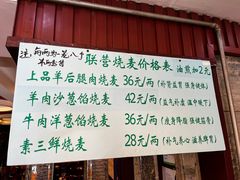 注：每两一笼八个
半两起售
联营烧麦价格表 油煎加2元
上品羊后腿肉烧麦 36元/两（补肾益胃 强身健体）
羊肉沙葱馅烧麦 42元/两（益气补虚 温中暖下）
牛肉洋葱馅烧麦 36元/两（瘦身降脂 强体益智）
素三鲜烧麦 28元/两（补气养心 滋养脾胃）